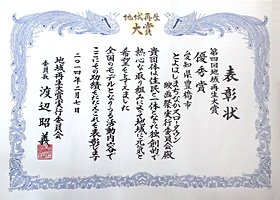 地域再生
大賞
表彰状
第四回地域再生大賞
優秀賞
愛知県豊橋市
とよはしまちなかスロータウン
映画祭実行委員会殿
貴団体は住民と一体となった独創的で
熱心な取り組みによって地域に元気と
希望を与えました
全国のモデルとなりうる活動内容で
ここにその功績をたたえこれを表彰します
二〇一四年二月七日
地域再生大賞実行委員会
委員長 渡辺昭義